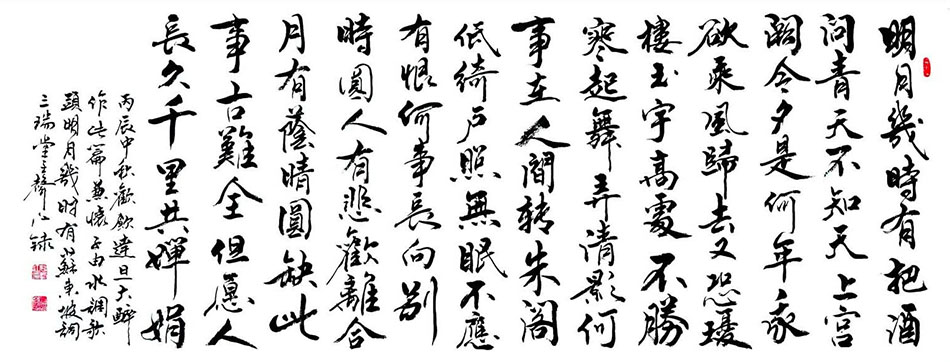 明月幾時有把酒
問青天不知天上宮
闕今夕是何年我
欲乘風歸去又恐瓊
樓玉宇高處不勝
寒起舞弄清影何
事在人間轉朱閣
低綺戶照無眠不應
有恨何事長向別
時圓人有悲歡離合
月有蔭晴圓缺此
事古難全但愿人
長久千里共嬋娟
丙辰中秋歡飲達旦大醉
作此篇兼懷子由水調歌
頭明月幾時有蘇東坡詞
三瑞堂聲心録